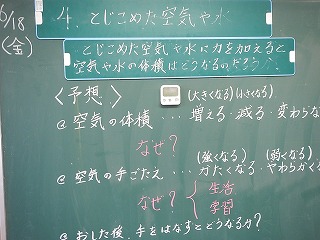 6/18
(金)
4. とじこめた空気や水
とじこめた空気や水に力を加えると
空気や水の体積はどうなるのだろう?
〈予想〉
(大きくなる)(小さくなる)
@ 空気の体積 … 増える・減る・変わらな
なぜ?
(強くなる) (弱くなる)
@ 空気の手ごたえ … かたくなる・やわらかく
なぜ? { 生活
学習
@ おした後、手をはなすとどうなるか?